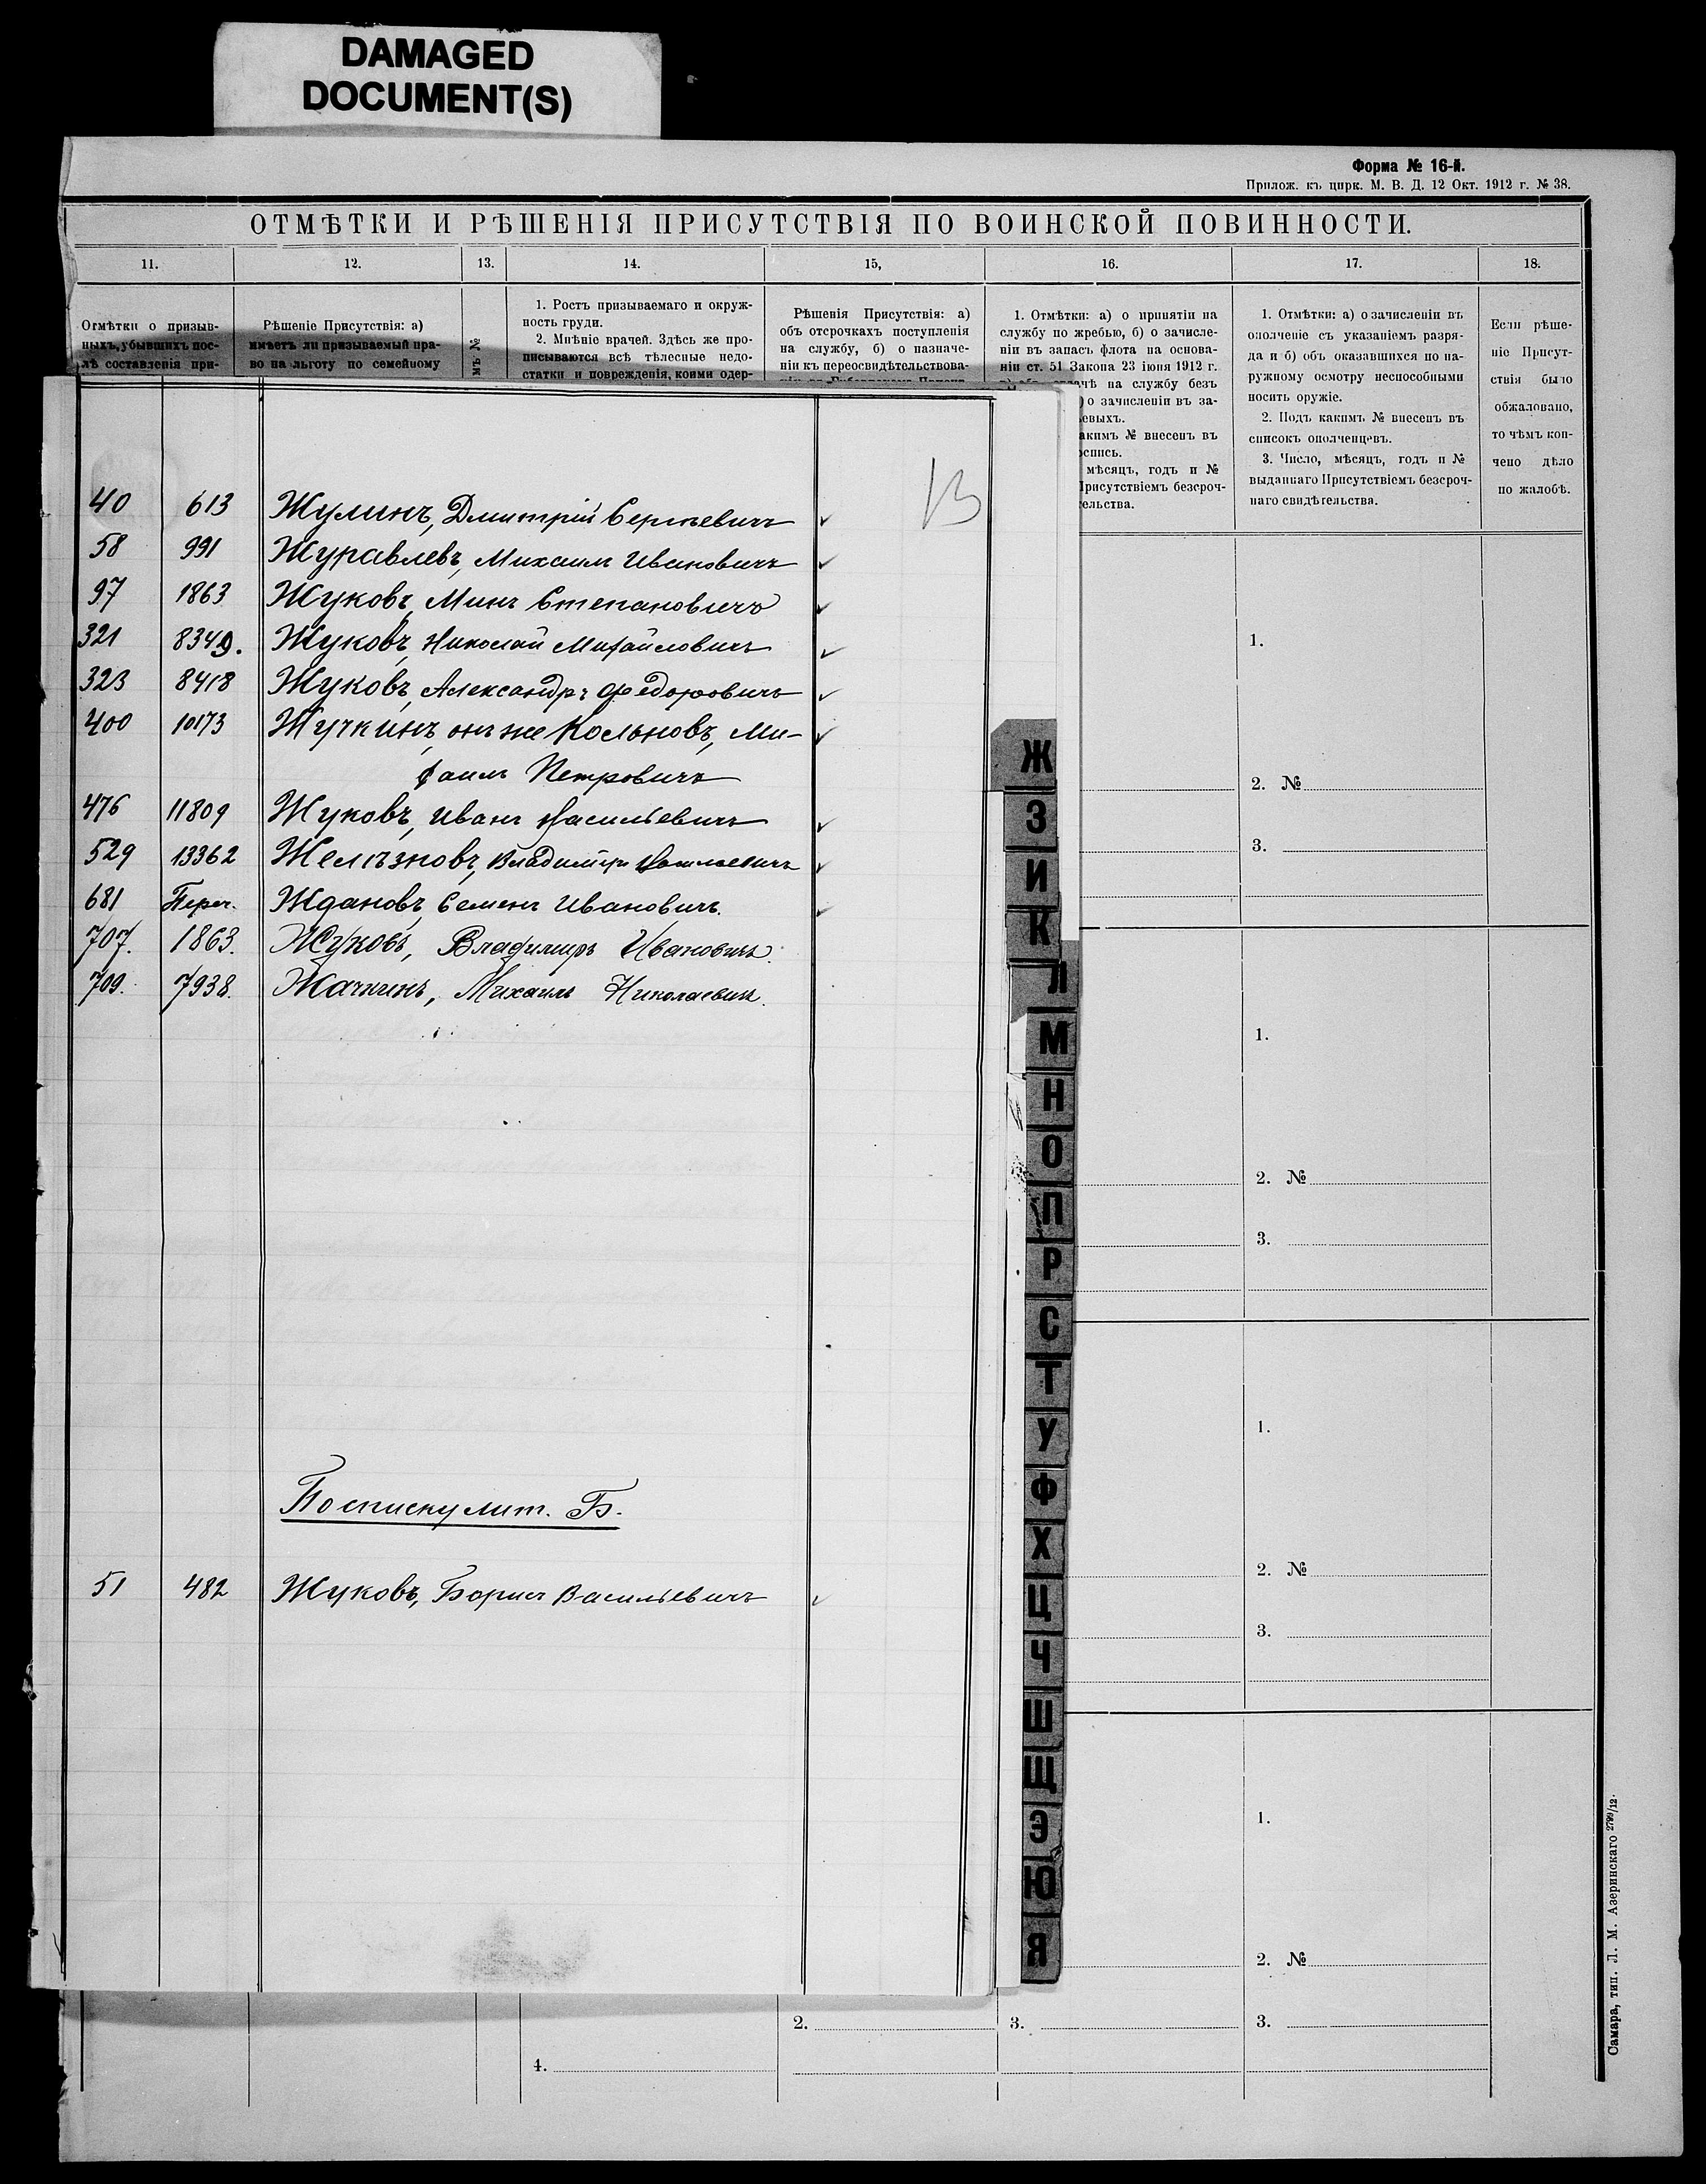 DAMAGED
DOCUMENT(S)
Форма № 16-й.
Прилож. къ цирк. М. В. Д. 12 Окт. 1912 г. № 38.
ОТМѢТКИ И РѢШЕНІЯ ПРИСУТСТВІЯ ПО ВОИНСКОЙ ПОВИННОСТИ.
11. 12. 13. 14. 15, 16. 17. 18.
Отмѣтки о призыв-
ныхъ, убывшихъ пос-
лѣ составленія при-
Рѣшеніе Присутствія: а)
имѣетъ ли призываемый пра-
во на льготу по семейному
мъ №
1. Ростъ призываемаго и окруж-
ность груди.
2. Мнѣніе врачей. Здѣсь же про-
писываются всѣ тѣлесные недо-
статки и поврежденія, коими одер-
Рѣшенія Присутствія: а)
объ отсрочкахъ поступленія
на службу, б) о назначе-
ніи къ переосвидѣтельствова-
1. Отмѣтки: а) о принятіи на
службу по жребью, б) о зачисле-
ніи въ запасъ флота на основа-
ніи ст. 51 Закона 23 іюня 1912 г.
ачѣ на службу безъ
) о зачисленіи въ за-
евыхъ.
акимъ № внесенъ въ
оспись.
мѣсяцъ, годъ и №
Присутствіемъ безсроч-
ельства.
1. Отмѣтки: а) о зачисленіи въ
ополченіе съ указаніемъ разря-
да и б) объ оказавшихся по на-
ружному осмотру неспособными
носить оружіе.
2. Подъ какимъ № внесенъ въ
списокъ ополченцевъ.
3. Число, мѣсяцъ, годъ и №
выданнаго Присутствіемъ безсроч-
наго свидѣтельства.
Если рѣше-
ніе Присут-
ствія было
обжаловано,
то чѣмъ кон-
чено дѣло
по жалобѣ.
13
40 613 Жулинъ, Дмитрій Сергѣевичъ
58 991 Журавлевъ, Михаилъ Ивановичъ
97 1863 Жуковъ, Минъ Степановичъ
321 8349. Жуковъ, Николай Михайловичъ
323 8418 Жуковъ, Александръ Федоровичъ
400 10173 Жучкинъ, онъ же Кольновъ, Ми-
хаилъ Петровичъ
476 11809 Жуковъ, Иванъ Васильевичъ
529 13362 Желѣзновъ, Владиміръ Васильевичъ
681 Переч. Ждановъ, Семенъ Ивановичъ.
707. 1863. Жуковъ, Владиміръ Ивановичъ.
709. 7938. Жачкинъ, Михаилъ Николаевичъ.
По списку лит. Б.
51 482 Жуковъ, Борисъ Васильевичъ
Ж
З
И
К
Л
М
Н
О
П
Р
С
Т
У
Ф
Х
Ц
Ч
Ш
Щ
Э
Ю
Я
1.
2. №
3.
1.
2. №
3.
1.
2. №
3.
1.
2. №
2. 3. 3.
4.
Самара, тип. Л. М. Азеринскаго 2799/12.